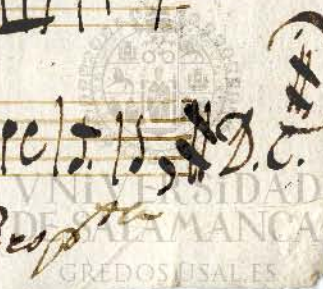 D. C.
Resp.ta
VNIVERSIDAD
DE SALAMANCA
GREDOS.USAL.ES